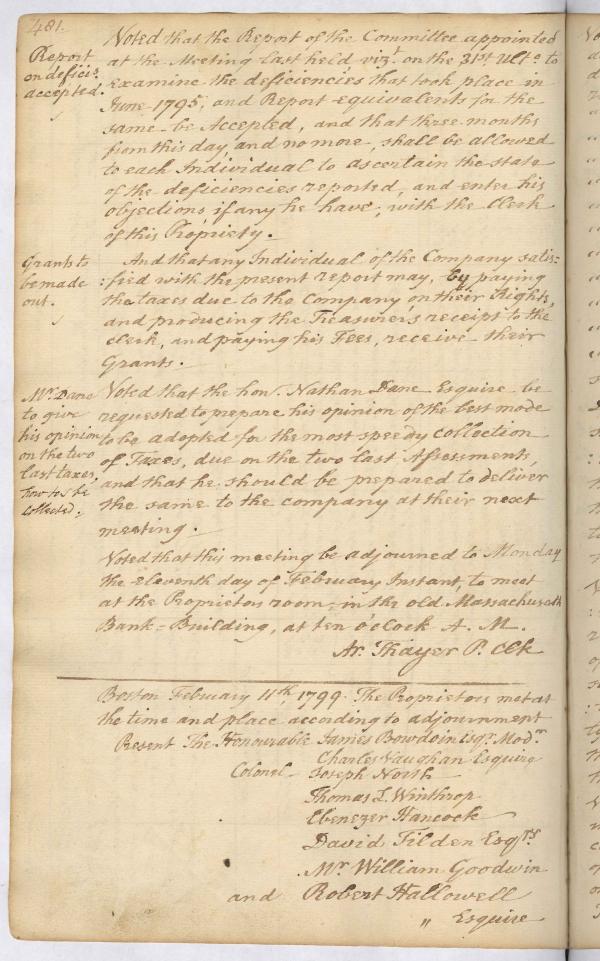 481.
Report
on deficis.
accepted.
Noted that the Report of the Committee appointed
at the Meeting last held vizt. on the 31st Ulto. to
examine the deficiencies that took place in
June 1795, and Report equivalents for the
same be Accepted, and that three months
from this day, and no more, shall be allowed
to each Individual to ascertain the state
of the deficiencies reported, and enter his
objections, if any he have, with the Clerk
of this Propriety.
Grants to
be made
out.
And that any Individual of the Company satis=
:fied with the present report may, by paying
the taxes due to the Company, on their Rights,
and producing the Treasurer's receipt to the
Clerk, and paying his Fees, receive their
Grants.
Mr. Dane
to give
his opinion
on the two
last taxes,
how to be
collected.
Voted that the hon. Nathan Dane Esquire be
requested to prepare his opinion of the best mode
to be adopted for the most speedy collection
of Taxes, due on the two last Assessments,
and that he should be prepared to deliver
the same to the company at their next
meeting.
Voted that this meeting be adjourned to Monday
the eleventh day of February Instant, to meet
at the Proprietors room, in the old Massachusetts
Bank-Building, at ten oClock A. M.
Ar. Thayer P. Clk
Boston February 11th, 1799. The Proprietors met at
the time and place according to adjournment
Present The Honourable James Bowdoin Esqr. Modr.
Charles Vaughan Esquire
Colonel Joseph North
Thomas L. Winthrop
Ebenezer Hancock
David Tilden Esqrs.
Mr. William Goodwin
and Robert Hallowell
" Esquire